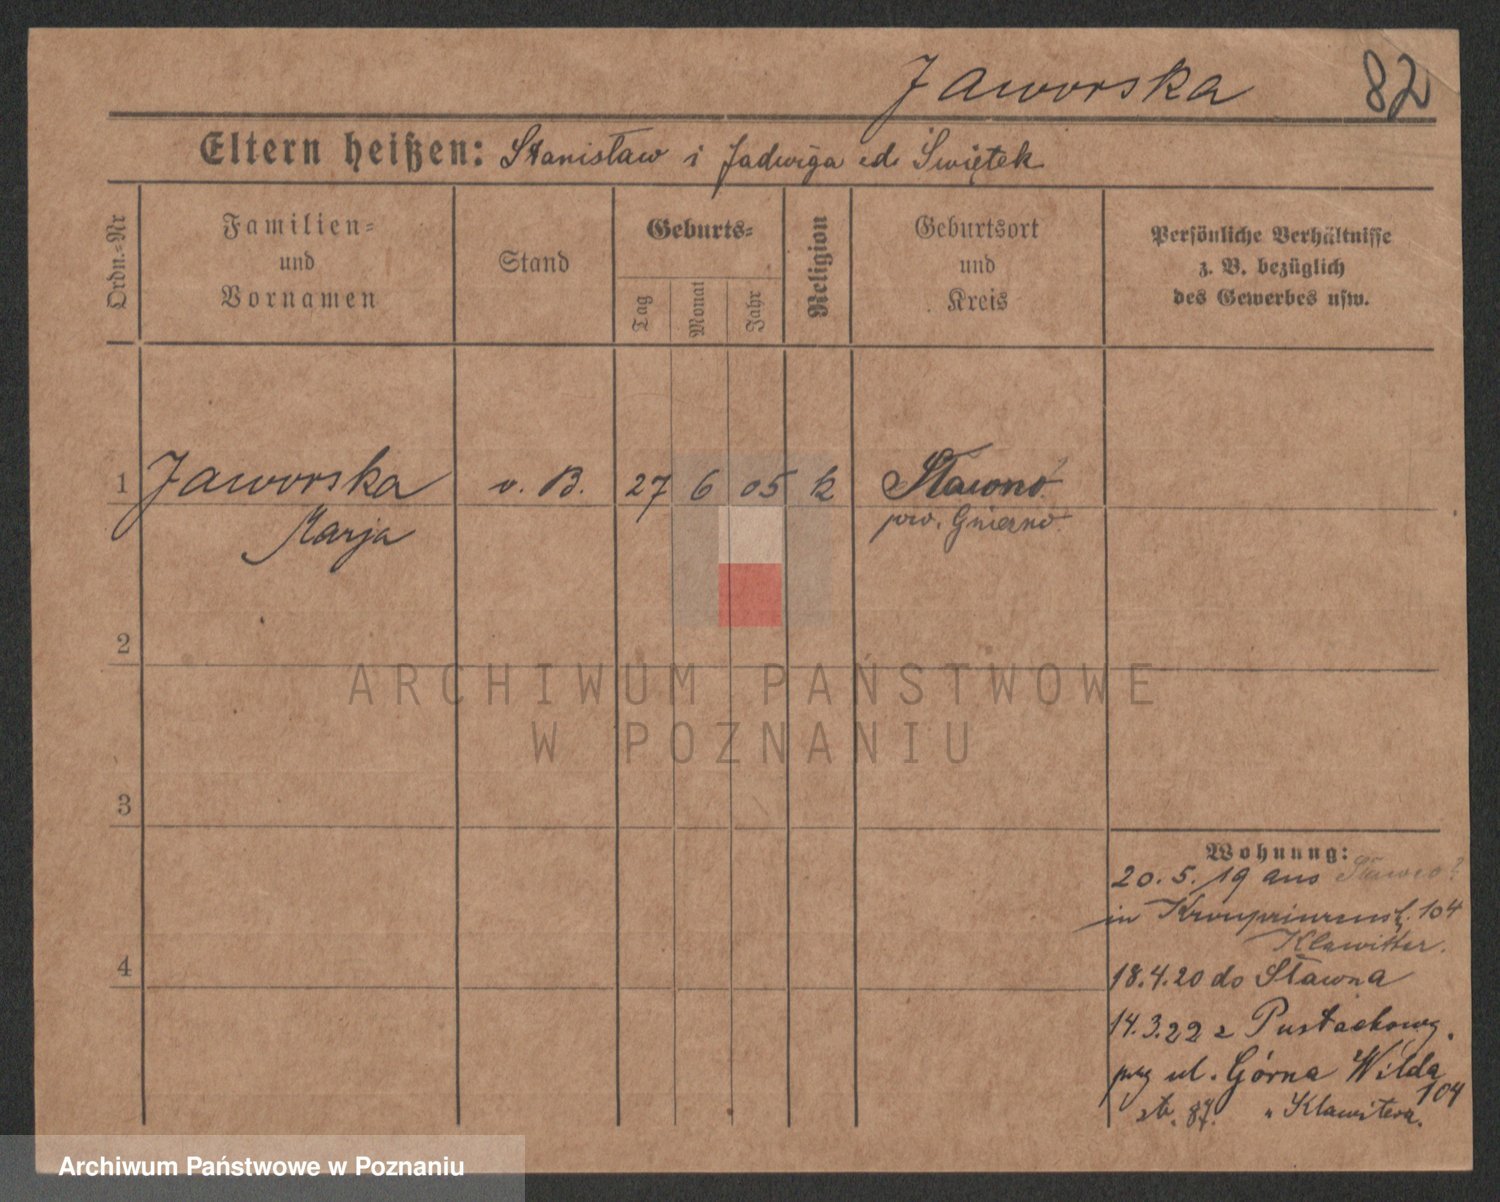 Jaworska 82
Eltern heißen: Stanisław i Jadwiga Świętek
Ordn.-Nr
Familien-
und
Vornamen
Stand
Geburts-
Tag
Monat
Jahr
Religion
Geburtsort
und
Kreis
Persönliche Verhältnisse
z. B. bezüglich
des Gewerbes usw.
1 Jaworska v. B. 27 6 05 k Sławno
Marja pow. Gniezno
2
ARCHIWUM PAŃSTWOWE
W POZNANIU
3
Wohnung:
20.5.19 aus
in Kronprinzenst. 104
Klawitter.
4
18.4.20 do Sławna
14.3.22 z Pustachowy.
przy ul. Górna Wilda
104
Klawitera.
Archiwum Państwowe w Poznaniu